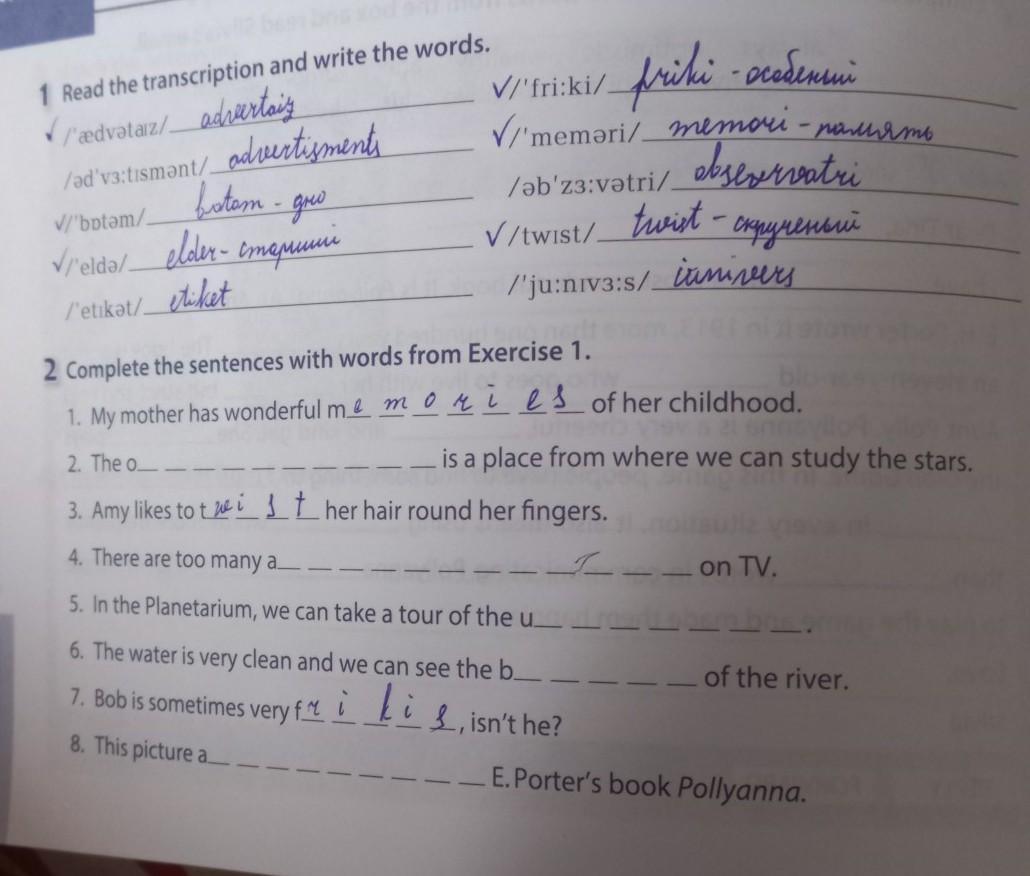 1 Read the transcription and write the words.
√ /ˈædvətaɪz/ advertaiz
/ədˈvɜːtɪsmənt/ advertisments
√/ˈbɒtəm/ botom - дно
√/ˈeldə/ elder - старший
/ˈetɪkət/ etiket
√/ˈfriːki/ friki - особений
√/ˈmeməri/ memori - память
/əbˈzɜːvətri/ observatri
√/twɪst/ twist - скручений
/ˈjuːnɪvɜːs/ iunivers
2 Complete the sentences with words from Exercise 1.
1. My mother has wonderful memories of her childhood.
2. The o__ __ __ __ __ __ __ __ __ __ is a place from where we can study the stars.
3. Amy likes to twist her hair round her fingers.
4. There are too many a__ __ __ on TV.
5. In the Planetarium, we can take a tour of the u__ __ __ __ __ __ __.
6. The water is very clean and we can see the b__ __ __ __ __ of the river.
7. Bob is sometimes very frikis, isn't he?
8. This picture a__ __ __ __ __ __ __ __ __ E. Porter's book Pollyanna.